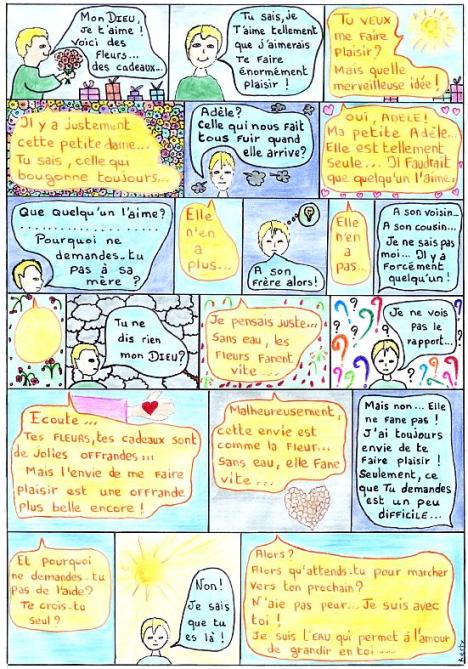 Mon DIEU,
Je t'aime !
Voici des
fleurs...
des cadeaux...
Tu sais, je
T'aime tellement
que j'aimerais
Te faire
énormément
plaisir !
Tu VEUX
me faire
plaisir ?
Mais quelle
merveilleuse idée !
Il y a justement
cette petite dame...
Tu sais, celle qui
bougonne toujours...
Adèle ?
Celle qui nous fait
tous fuir quand
elle arrive ?
Oui, ADELE !
Ma petite Adèle...
Elle est tellement
seule... Il faudrait
que quelqu'un l'aime.
Que quelqu'un l'aime ?
Pourquoi ne
demandes-tu
pas à sa
mère ?
Elle
n'en
a
plus...
A son
frère alors !
Elle
n'en
a
pas...
A son voisin...
A son cousin...
Je ne sais pas
moi... Il y a
forcément
quelqu'un !
Tu ne
dis rien
mon DIEU ?
Je pensais juste...
Sans eau, les
fleurs fanent
vite ....
Je ne vois
pas le
rapport...
Ecoute ...
Tes FLEURS, tes cadeaux sont
de jolies offrandes ...
Mais l'envie de me faire
plaisir est une offrande
plus belle encore !
Malheureusement,
cette envie est
comme la fleur...
Sans eau, elle fane
vite ...
Mais non... Elle
ne fane pas !
J'ai toujours
envie de te
faire plaisir !
Seulement, ce
que Tu demandes
est un peu
difficile...
Et pourquoi
ne demandes-tu
pas de l'aide ?
Te crois-tu
seul ?
Non !
Je sais
que tu
es là !
Alors ?
Alors qu'attends-tu pour marcher
vers ton prochain ?
N'aie pas peur... Je suis avec
toi !
Je suis L'EAU qui permet à l'amour
de grandir en toi ....